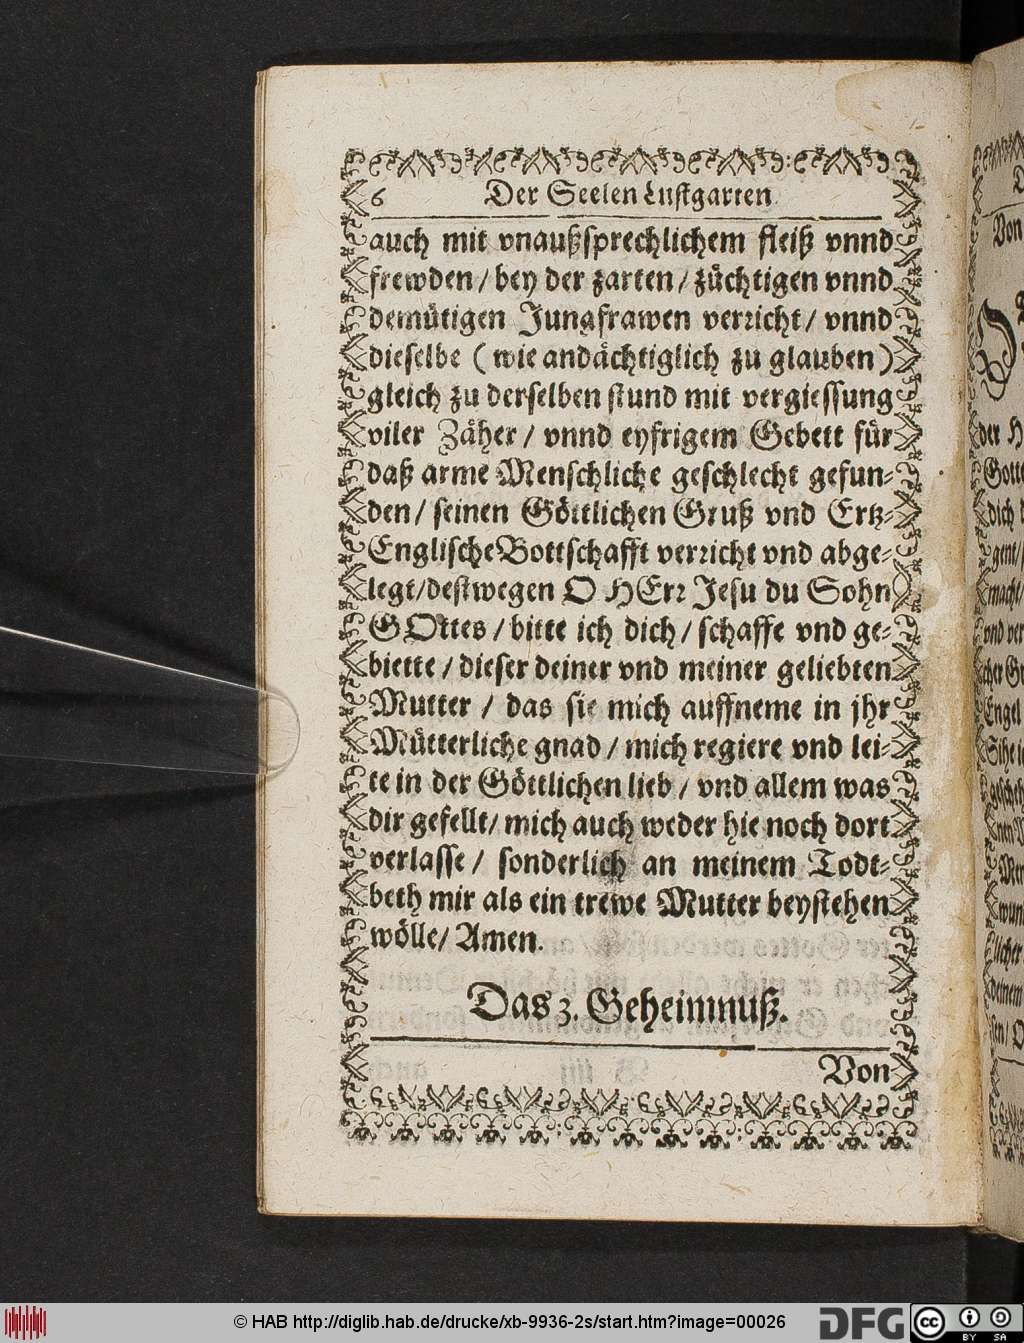 6 Der Seelen Lustgarten
auch mit vnaußsprechlichem fleiß vnnd
frewden / bey der zarten / züchtigen vnnd
demütigen Jungfrawen verricht / vnnd
dieselbe ( wie andächtiglich zu glauben )
gleich zu derselben stund mit vergiessung
viler Zäher / vnnd eyfrigem Gebett für
daß arme Menschliche geschlecht gefun-
den / seinen Göttlichen Gruß vnd Ertz-
Englische Bottschafft verricht vnd abge-
legt / destwegen O HErr Jesu du Sohn
GOttes / bitte ich dich / schaffe vnd ge-
biette / dieser deiner vnd meiner geliebten
Mutter / das sie mich auffneme in jhr
Mütterliche gnad / mich regiere vnd lei-
te in der Göttlichen lieb / vnd allem was
dir gefellt / mich auch weder hie noch dort
verlasse / sonderlich an meinem Todt-
beth mir als ein trewe Mutter beystehen
wölle / Amen.
Das 3. Geheimnuß.
Von
Von
der H
Gotte
dich
gent /
macht /
vnd ver
cher Gr
Engel
Sihe
wun
licher
deinem
© HAB http://diglib.hab.de/drucke/xb-9936-2s/start.htm?image=00026
DFG
cc
BY SA